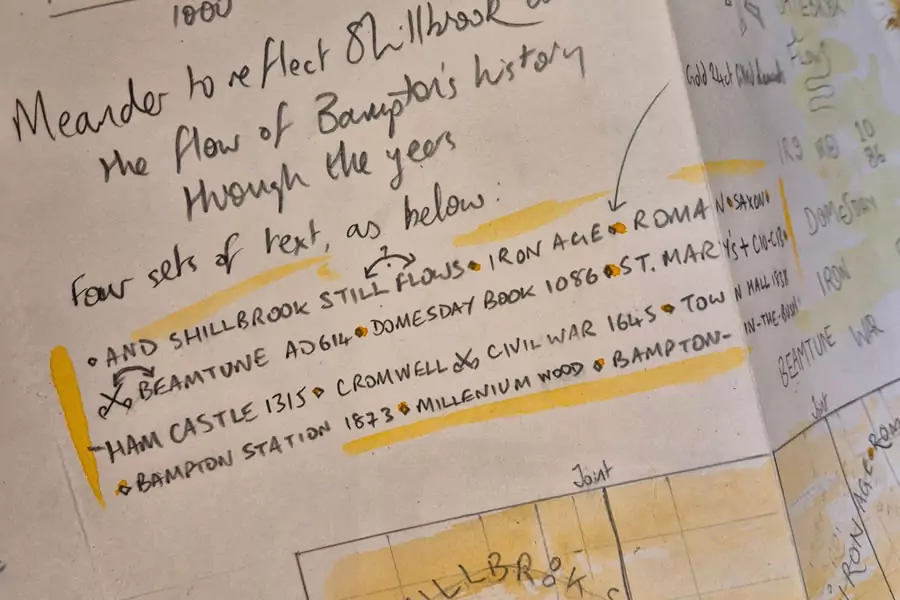 1000
Meander to reflect Shillbrook
the flow of Bampton's history
through the years
Four sets of text, as below:
Gold 24ct
?
• AND SHILLBROOK STILL FLOWS • IRON AGE • ROMAN • SAXON •
BEAMTUNE AD614 • DOMESDAY BOOK 1086 • ST. MARY'S + C10-C13 •
-HAM CASTLE 1315 • CROMWELL CIVIL WAR 1645 • TOWN HALL 1838
• BAMPTON STATION 1873 • MILLENIUM WOOD • BAMPTON-IN-THE-BUSH
FLOWS
10
86
DOMESDAY
IRON
BEAMTUNE WAR
Joint
Joint
ILLBROOK
IRON AGE • ROM